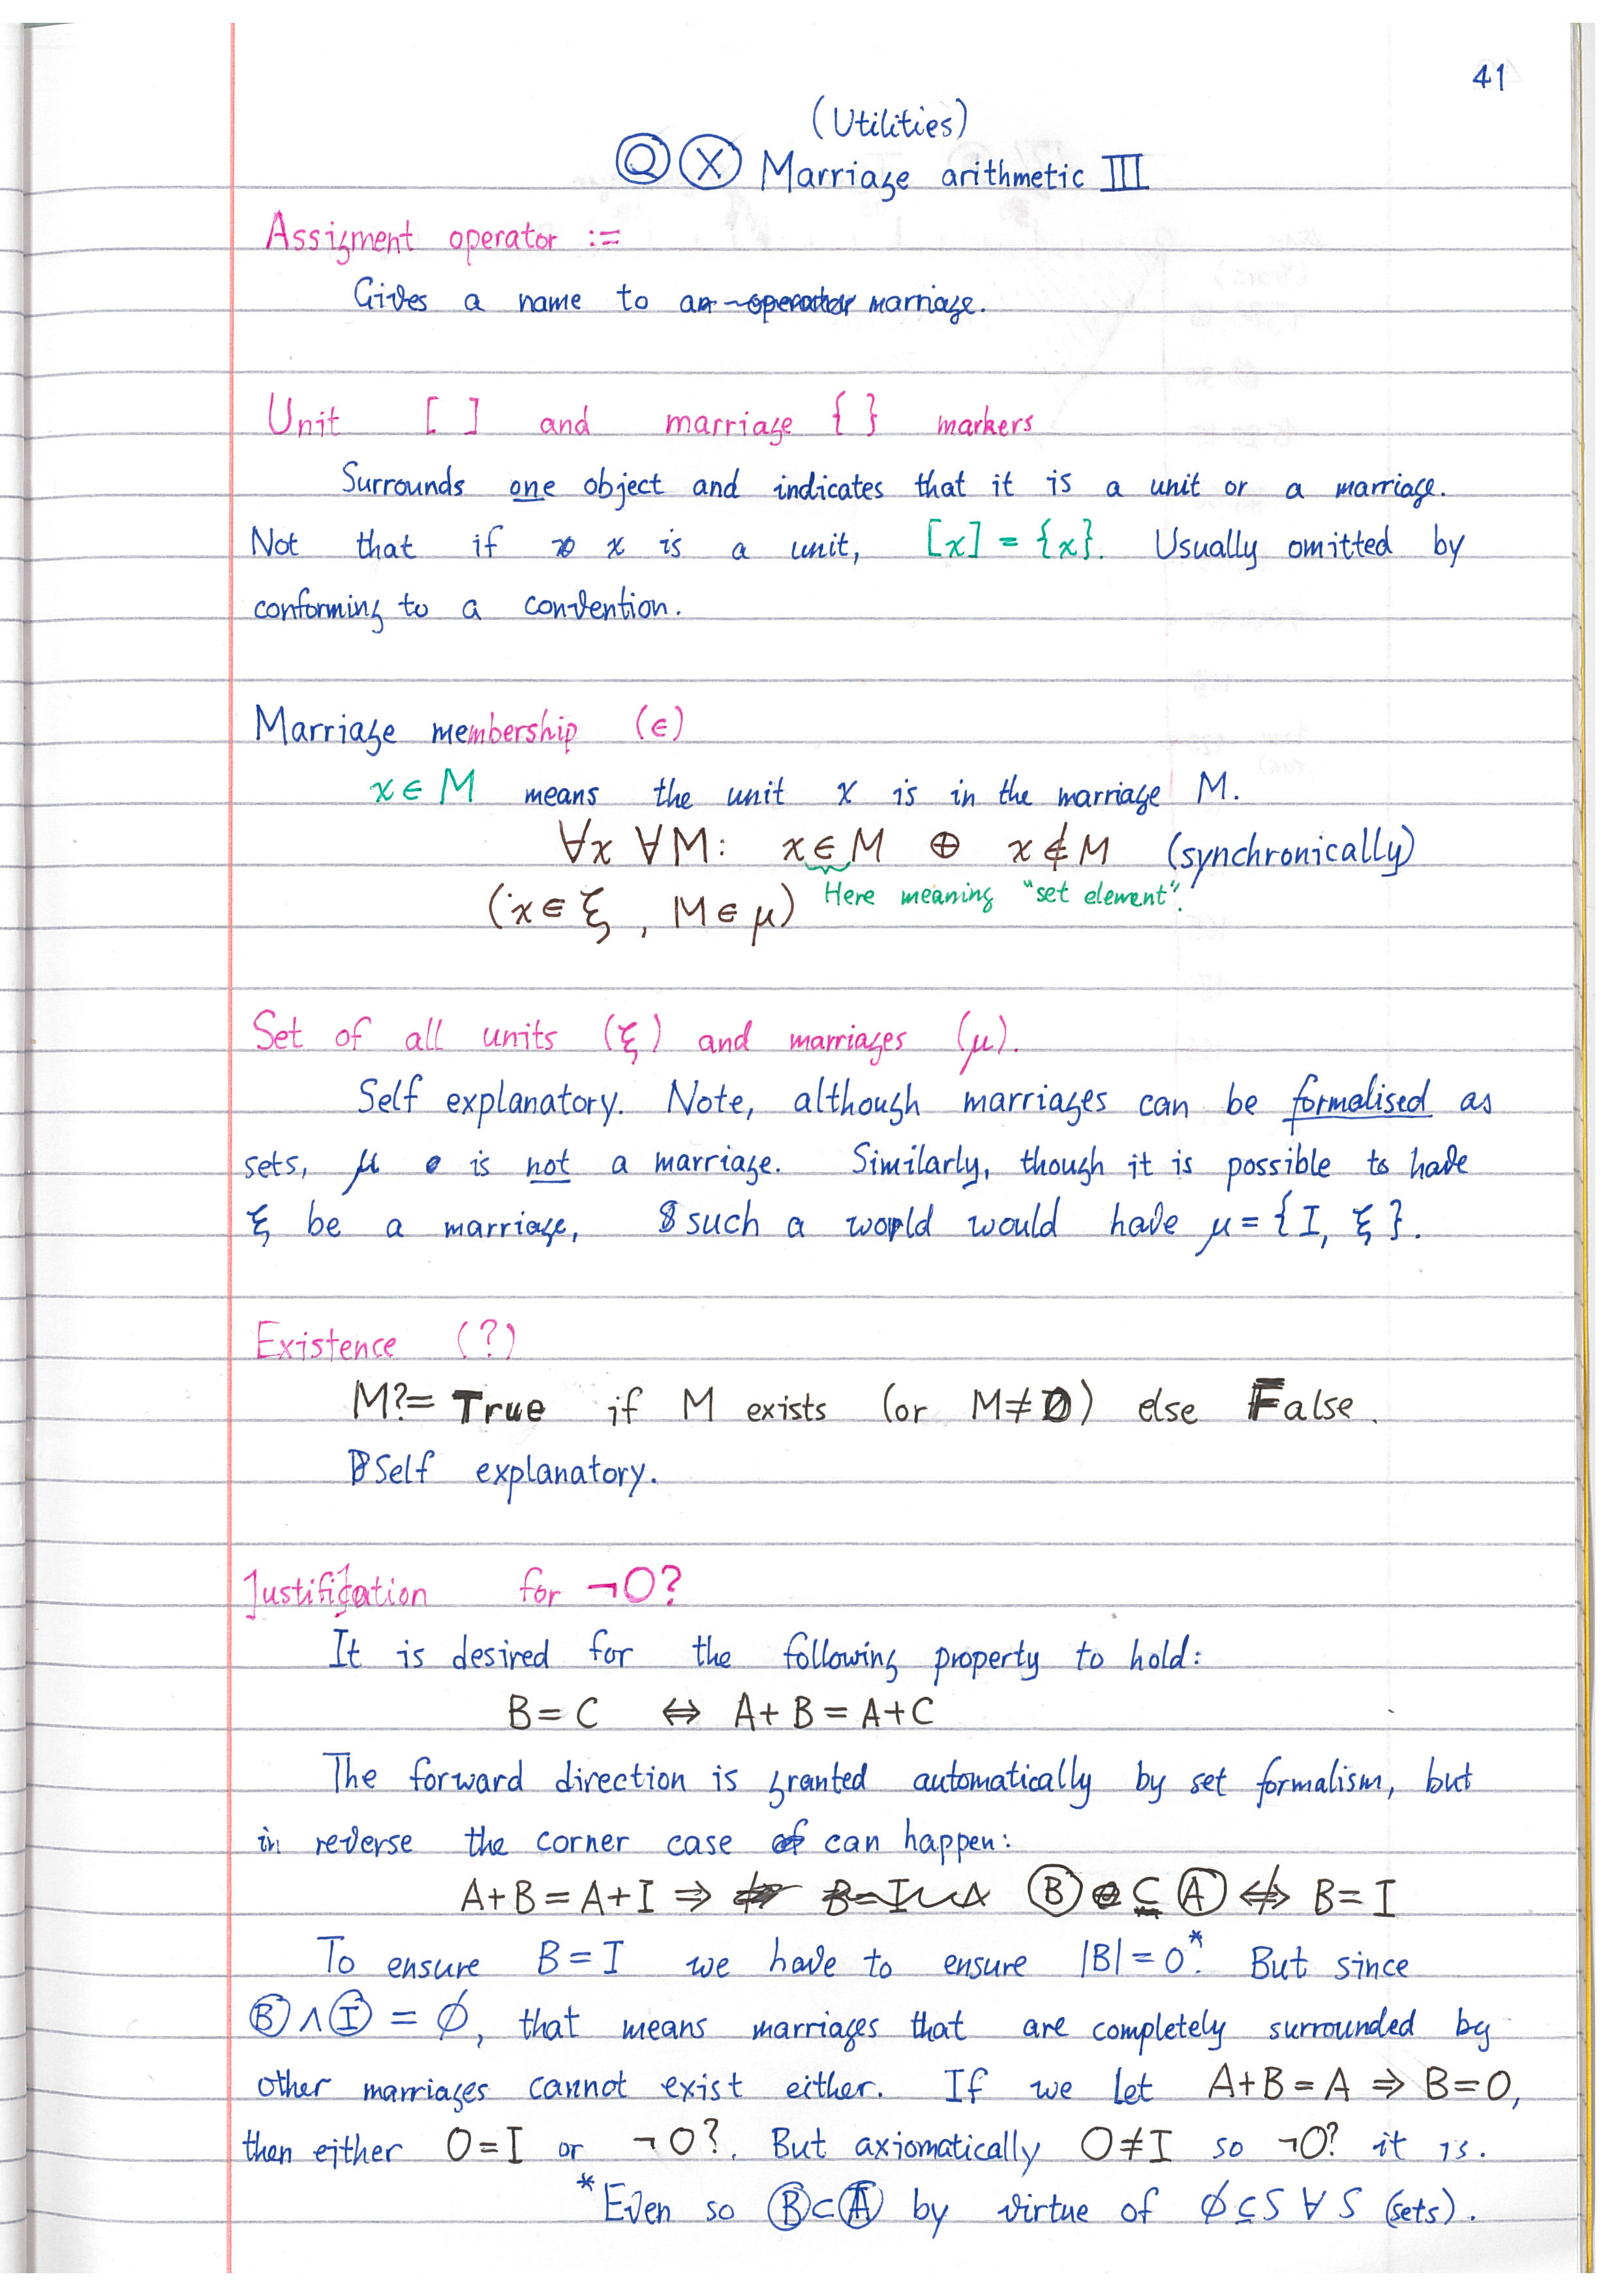 41
(Utilities)
Ⓠ Ⓧ Marriage arithmetic III
Assigment operator :=
Gives a name to an operator marriage.
Unit [ ] and marriage { } markers
Surrounds one object and indicates that it is a unit or a marriage.
Not that if x is a unit, [x] = {x}. Usually omitted by
conforming to a convention.
Marriage membership (∈)
x ∈ M means the unit x is in the marriage M.
∀x ∀M: x ∈ M ⊕ x ∉ M (synchronically)
(x ∈ ξ, M ∈ μ) Here meaning "set element".
Set of all units (ξ) and marriages (μ).
Self explanatory. Note, although marriages can be formalised as
sets, μ is not a marriage. Similarly, though it is possible to have
ξ be a marriage, such a world would have μ = {I, ξ}.
Existence (?)
M? = True if M exists (or M ≠ Ø) else False.
Self explanatory.
Justification for ¬O?
It is desired for the following property to hold:
B = C ⇔ A + B = A + C
The forward direction is granted automatically by set formalism, but
in reverse the corner case of can happen:
A + B = A + I ⇒ B = I Ⓑ ⊆ Ⓐ ⇎ B = I
To ensure B = I we have to ensure |B| = 0*. But since
Ⓑ ∧ Ⓘ = Ø, that means marriages that are completely surrounded by
other marriages cannot exist either. If we let A + B = A ⇒ B = O,
then either O = I or ¬O?. But axiomatically O ≠ I so ¬O? it is.
*Even so Ⓑ ⊂ Ⓐ by virtue of Ø ⊆ S ∀ S (sets).